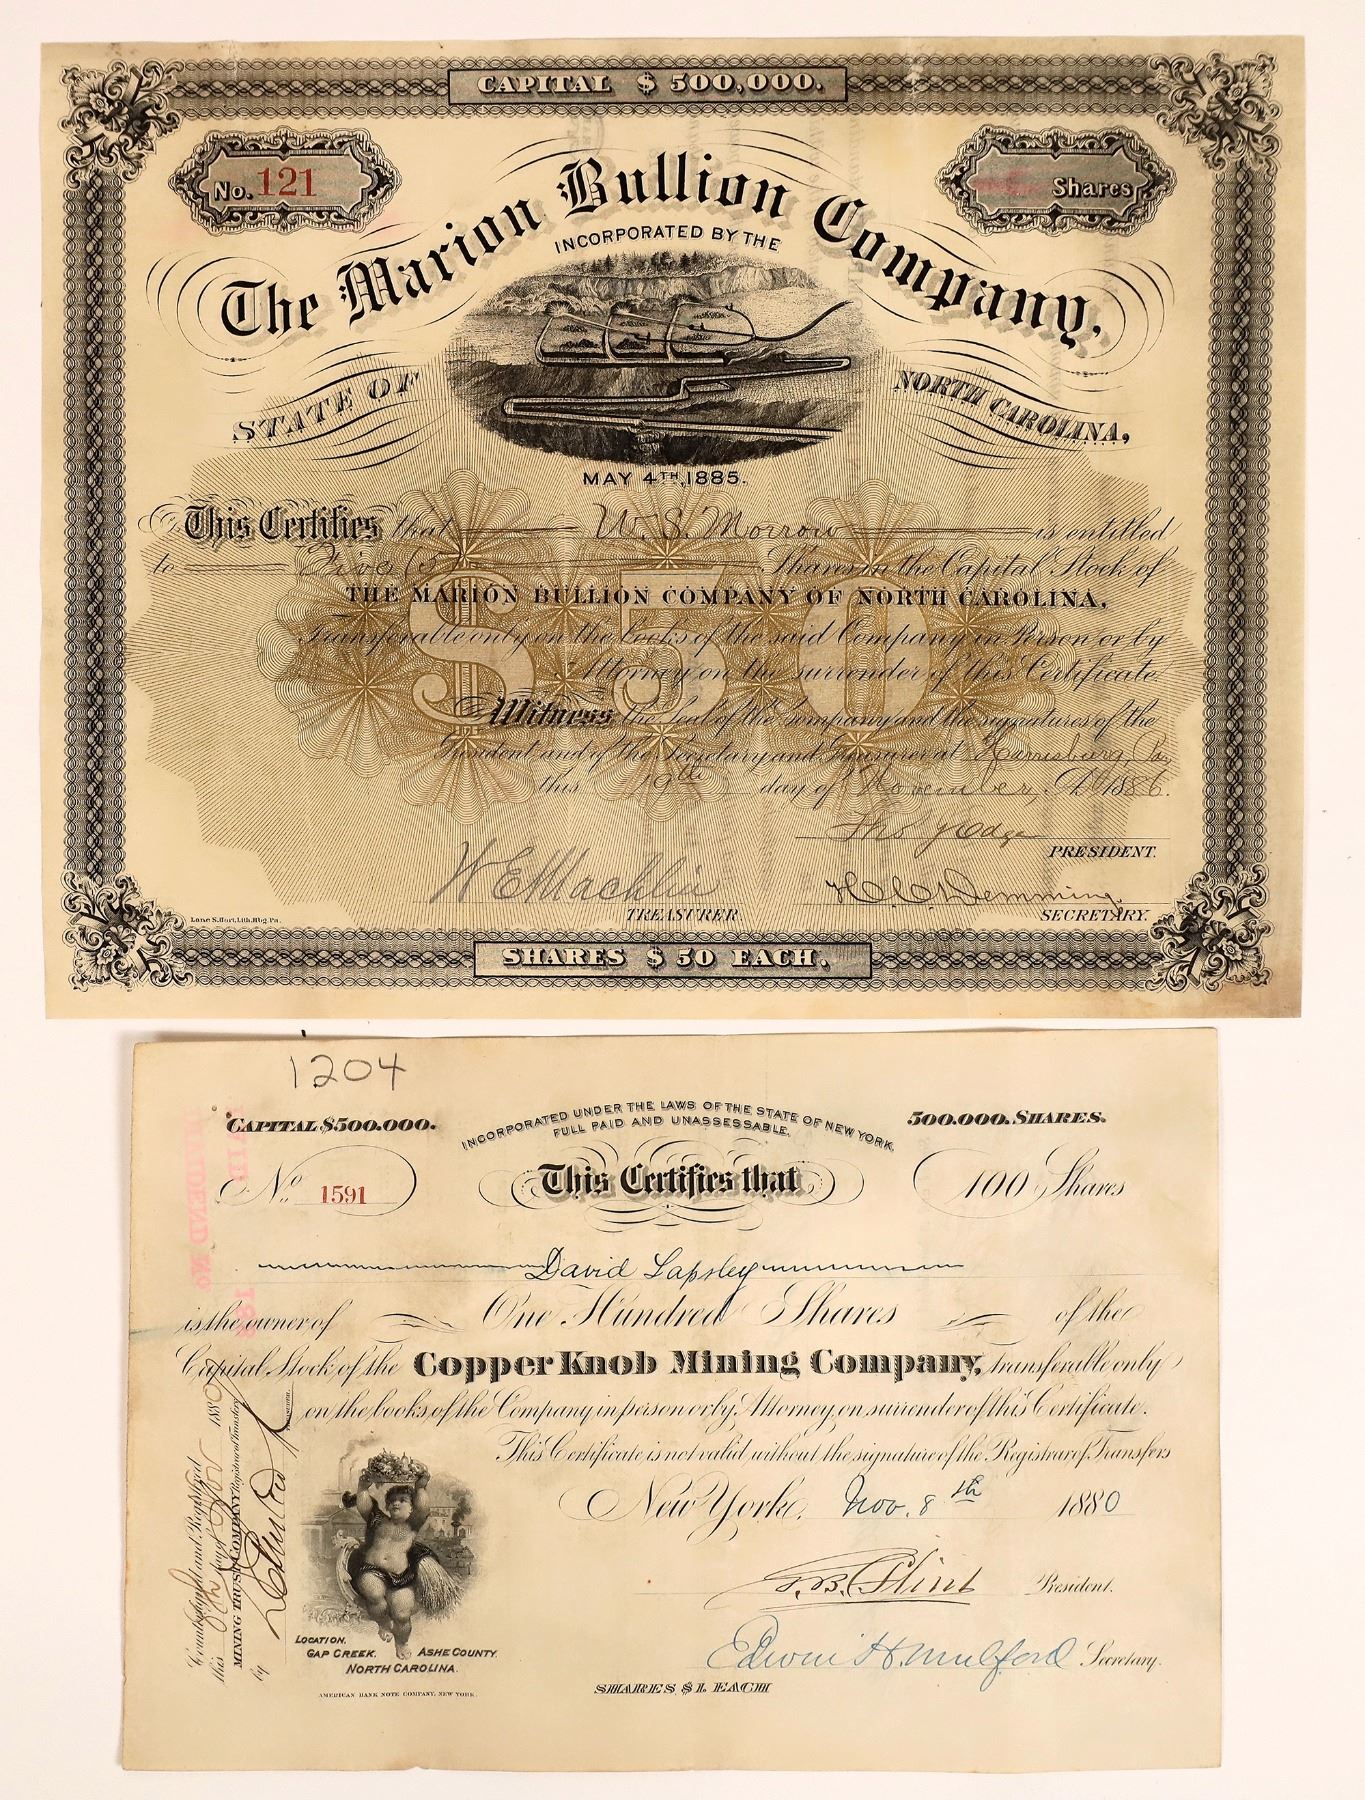 CAPITAL $ 500,000.
No. 121
Shares
The Marion Bullion Company,
INCORPORATED BY THE
STATE OF NORTH CAROLINA,
MAY 4TH, 1885.
This Certifies that W. S. Morrow is entitled
to Five (5) Shares in the Capital Stock of
THE MARION BULLION COMPANY OF NORTH CAROLINA,
$50
Transferable only on the books of the said Company in Person or by
Attorney on the surrender of this Certificate.
Witness the Seal of the Company and the signatures of the
President and of the Secretary and Treasurer at Harrisburg, Pa.
this 19th day of November, A.D. 1886.
PRESIDENT.
W E Machlin
H. C. Demming
TREASURER
SECRETARY.
Lane S. Hart, Lith. Hbg. Pa.
SHARES $ 50 EACH.
1204
CAPITAL $500.000.
INCORPORATED UNDER THE LAWS OF THE STATE OF NEW YORK.
FULL PAID AND UNASSESSABLE.
500.000. SHARES.
No. 1591
This Certifies that
100 Shares
David Lapsley
is the owner of One Hundred Shares of the
Capital Stock of the Copper Knob Mining Company, transferable only
on the books of the Company in person or by Attorney, on surrender of this Certificate.
This Certificate is not valid without the signature of the Registrar of Transfers
New York, Nov. 8th 1880
President.
Edwin H. Mulford Secretary.
SHARES $1. EACH
Countersigned and Registered
this 8th day of Nov 1880
MINING TRUST COMPANY Registrar of Transfers
by
LOCATION.
GAP CREEK. ASHE COUNTY.
NORTH CAROLINA.
AMERICAN BANK NOTE COMPANY, NEW YORK.
DIVIDEND No